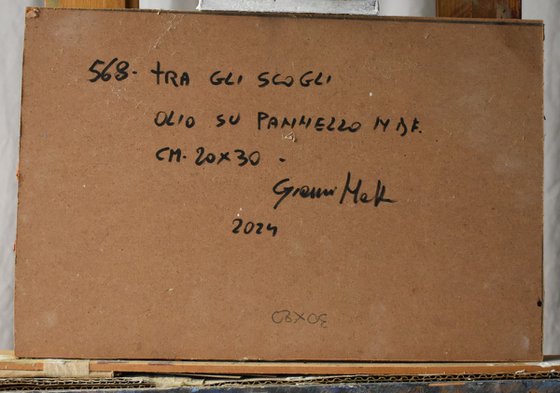 568. TRA GLI SCOGLI
OLIO SU PANNELLO MDF.
CM. 20X30 -
Gianni
2024
30X20